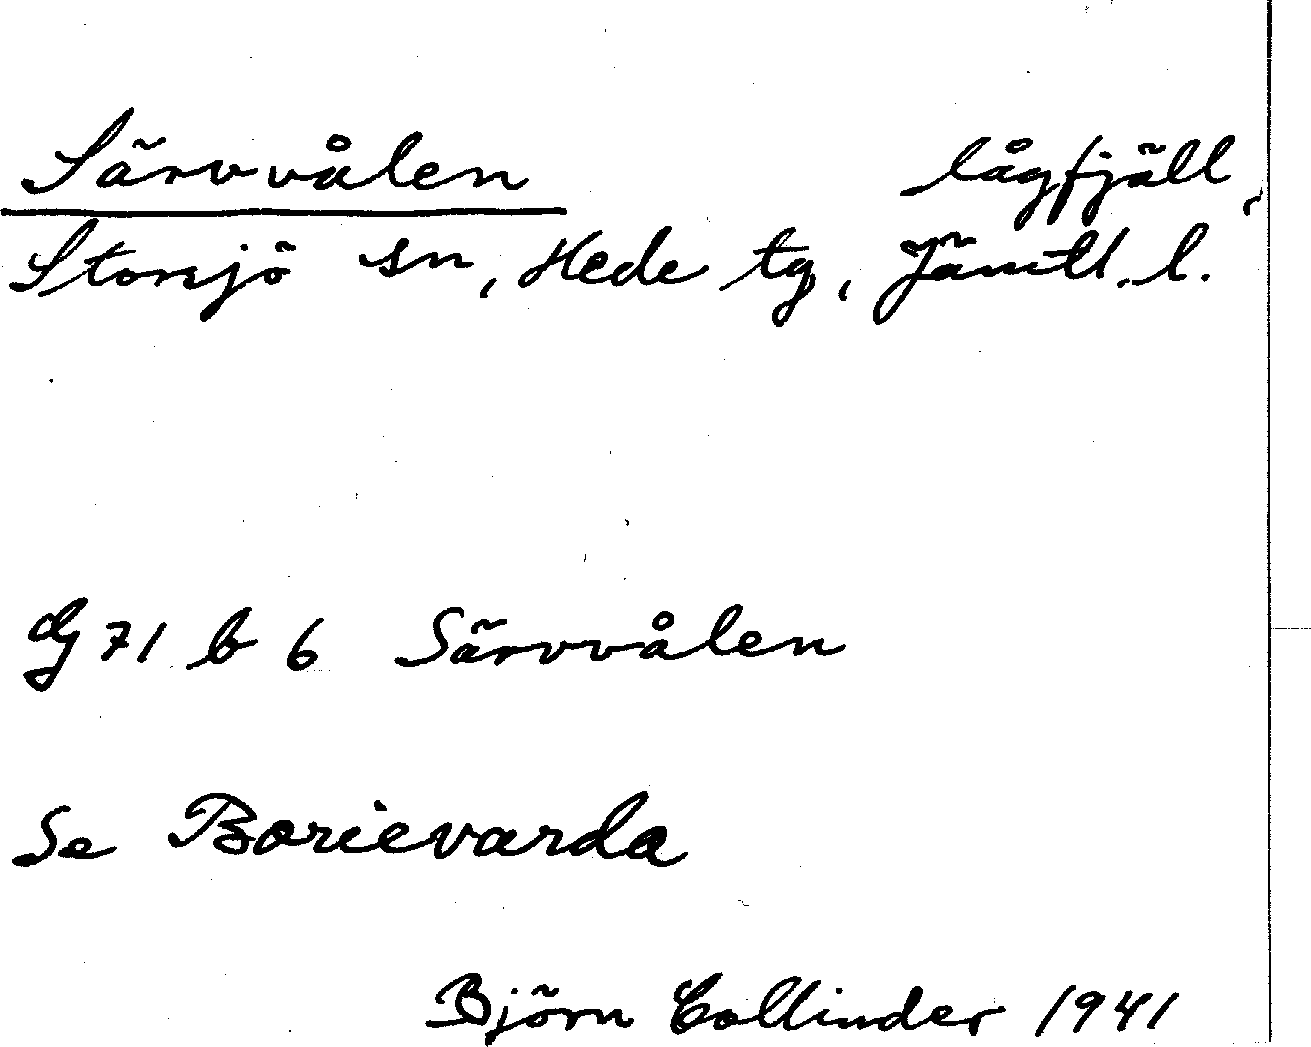 Särvvålen lågfjäll,
Storsjö sn, Hede tg, Jämtl. l.
G 71 b 6 Särvvålen
Se Borievarda
Björn Collinder 1941